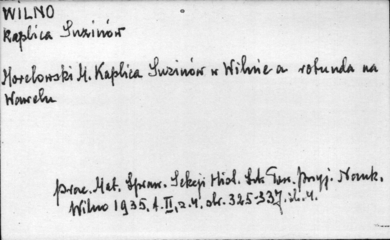 WILNO
Kaplica Suzinów
Morelowski M. Kaplica Suzinów w Wilnie a rotunda na
Wawelu
Prac. Mat. Spraw. Sekcji Hist. Szt. Tow. Przyj. Nauk.
Wilno 1935. t. II, z. 4. str. 325-337. il. 4.